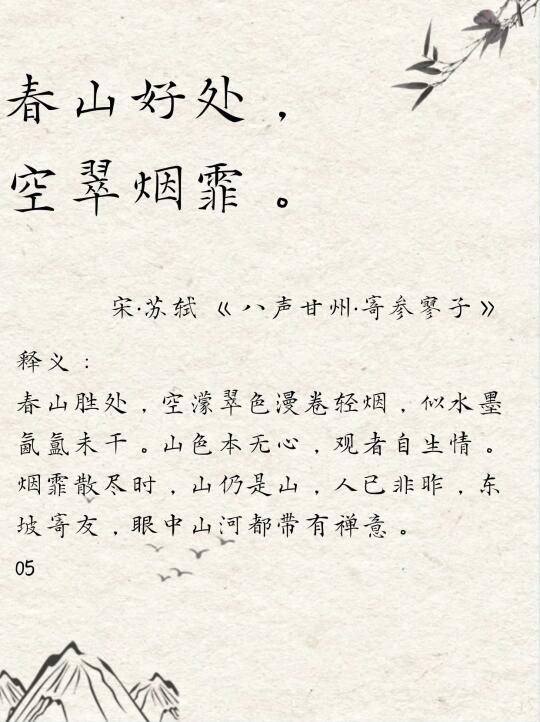 春山好处，
空翠烟霏。
宋·苏轼《八声甘州·寄参寥子》
释义：
春山胜处，空濛翠色漫卷轻烟，似水墨
氤氲未干。山色本无心，观者自生情。
烟霏散尽时，山仍是山，人已非昨，东
坡寄友，眼中山河都带有禅意。
05